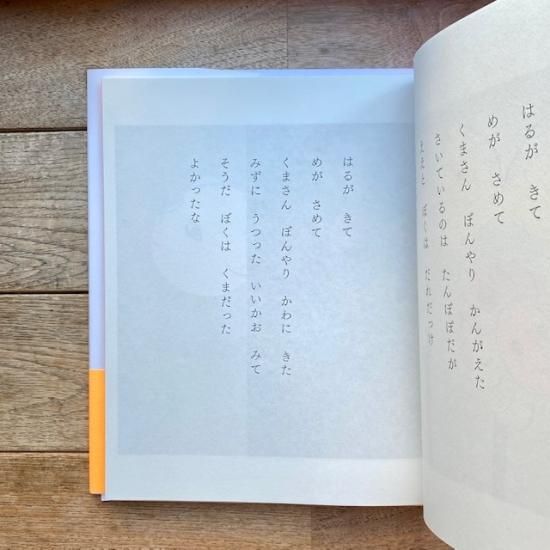 はるが きて
めが さめて
くまさん ぼんやり かんがえた
さいているのは たんぽぽだが
ええと ぼくは だれだっけ
はるが きて
めが さめて
くまさん ぼんやり かわに きた
みずに うつった いいかお みて
そうだ ぼくは くまだった
よかったな